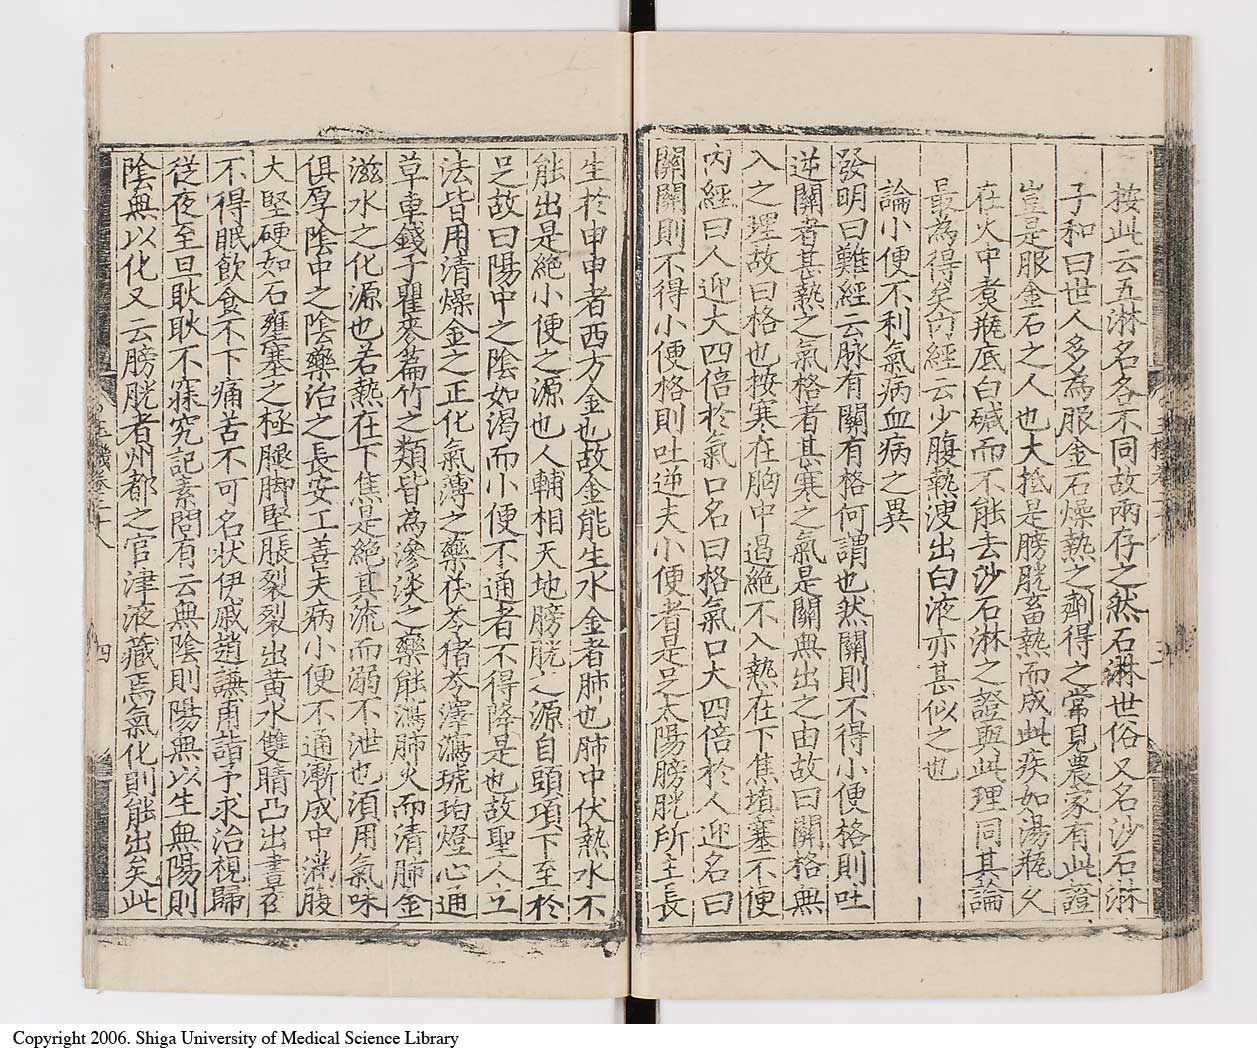 按此云五淋名各不同故兩存之然石淋世俗又名沙石淋
子和曰世人多為服金石燥熱之劑得之常見農家有此證
豈是服金石之人也大抵是膀胱畜熱而成此疾如湯瓶久
在火中煮瓶底白碱而不能去沙石淋之證與此理同其論
最為得矣内經云少腹熱溲出白液亦甚似之也
論小便不利氣病血病之異
發明曰難經云脉有關有格何謂也然關則不得小便格則吐
逆關者甚熱之氣格者甚寒之氣是關無出之由故曰關格無
入之理故曰格也按寒在胸中遏絕不入熱在下焦填塞不便
内經曰人迎大四倍於氣口名曰格氣口大四倍於人迎名曰
關關則不得小便格則吐逆夫小便者是足太陽膀胱所主長
生於申申者西方金也故金能生水金者肺也肺中伏熱水不
能出是絕小便之源也人輔相天地膀胱之源自頭項下至於
足故曰陽中之陰如渴而小便不通者不得降是也故聖人立
法皆用清燥金之正化氣薄之藥茯苓猪苓澤瀉琥珀燈心通
草車錢子瞿麥萹竹之類皆為滲淡之藥能瀉肺火而清肺金
滋水之化源也若熱在下焦是絕其流而溺不泄也須用氣味
俱厚陰中之陰藥治之長安工善夫病小便不通漸成中滿腹
大堅硬如石壅塞之極腿脚堅脹裂裂出黄水雙睛凸出晝夜
不得眠飲食不下痛苦不可名状伊戚趙謙甫詣予求治視歸
從夜至旦耿耿不寐究記素問有云無陰則陽無以生無陽則
陰無以化又云膀胱者州都之官津液藏焉氣化則能出矣此
四
Copyright 2006. Shiga University of Medical Science Library